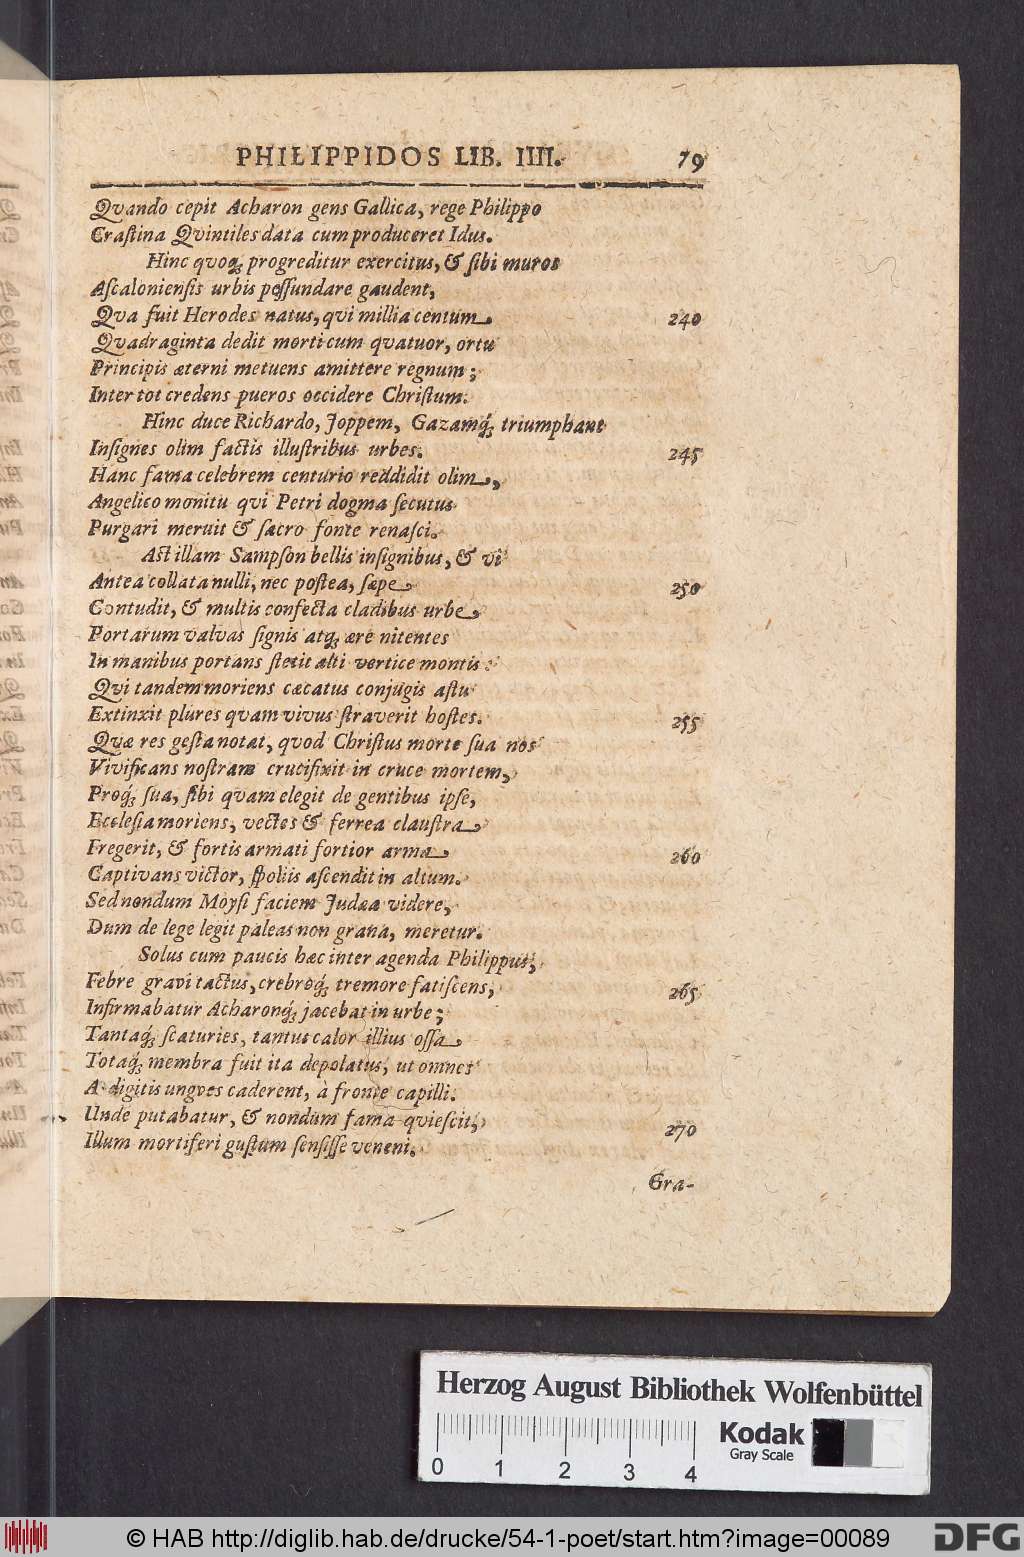 PHILIPPIDOS LIB. IIII. 79
Qvando cepit Acharon gens Gallica, rege Philippo
Craſtina Qvintiles data cum produceret Idus.
Hinc qvoq; progreditur exercitus, & ſibi muros
Aſcalonienſis urbis peſſundare gaudent,
Qva fuit Herodes natus, qvi millia centum 240
Qvadraginta dedit morti cum qvatuor, ortu
Principis æterni metuens amittere regnum;
Inter tot credens pueros occidere Chriſtum.
Hinc duce Richardo, Joppem, Gazamq́; triumphant
Inſignes olim factis illuſtribus urbes. 245
Hanc fama celebrem centurio reddidit olim,
Angelico monitu qvi Petri dogma ſecutus
Purgari meruit & ſacro fonte renaſci.
Aſt illam Sampſon bellis inſignibus, & vi
Antea collata nulli, nec poſtea, ſæpe 250
Contudit, & multis confecta cladibus urbe,
Portarum valvas ſignis atq; ære nitentes
In manibus portans ſtetit alti vertice montis:
Qvi tandem moriens cæcatus conjugis aſtu
Extinxit plures qvam vivus ſtraverit hoſtes. 255
Qvæ res geſta notat, qvod Chriſtus morte ſua nos
Vivificans noſtram crucifixit in cruce mortem,
Proq́; ſua, ſibi qvam elegit de gentibus ipſe,
Eccleſia moriens, vectes & ferrea clauſtra
Fregerit, & fortis armati fortior arma 260
Captivans victor, ſpoliis aſcendit in altum.
Sed nondum Moyſi faciem Judæa videre,
Dum de lege legit paleas non grana, meretur.
Solus cum paucis hæc inter agenda Philippus,
Febre gravi tactus, crebroq́; tremore fatiſcens, 265
Infirmabatur Acharonq́; jacebat in urbe;
Tantaq́; ſcaturies, tantus calor illius oſſa
Totaq́; membra fuit ita depolatus, ut omnes
A digitis ungves caderent, à fronte capilli.
Unde putabatur, & nondum fama qvieſcit, 270
Illum mortiferi guſtum ſenſiſſe veneni.
Gra-
Herzog August Bibliothek Wolfenbüttel
Kodak
Gray Scale
0 1 2 3 4
© HAB http://diglib.hab.de/drucke/54-1-poet/start.htm?image=00089
DFG